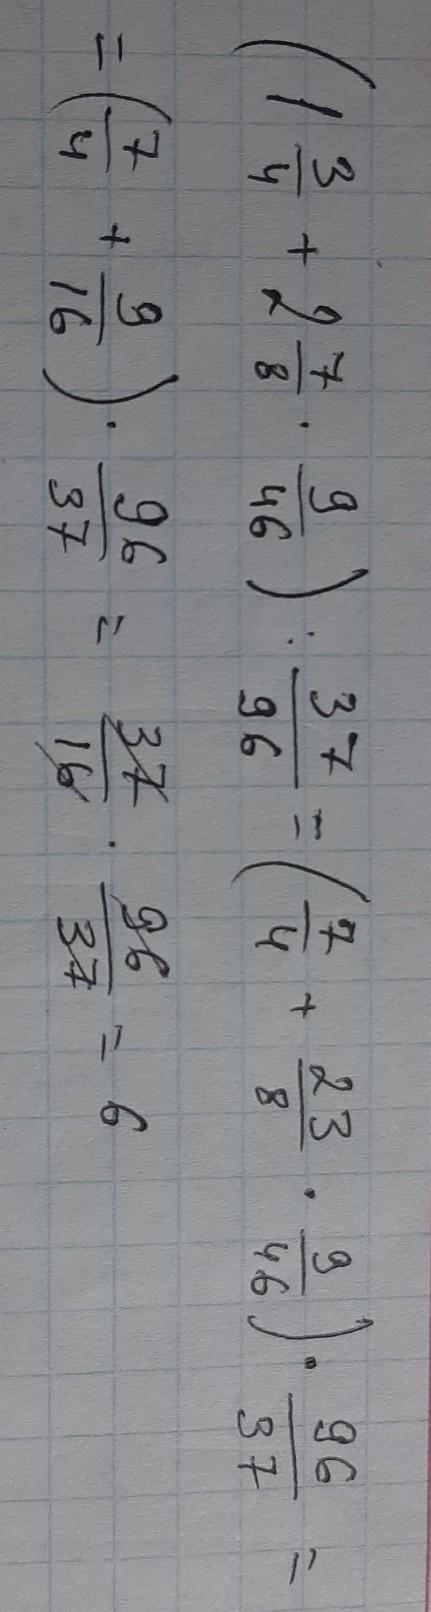 (1 3/4 + 2 7/8 · 9/46) : 37/96 = (7/4 + 23/8 · 9/46) · 96/37 =
= (7/4 + 9/16) · 96/37 = 37/16 · 96/37 = 6